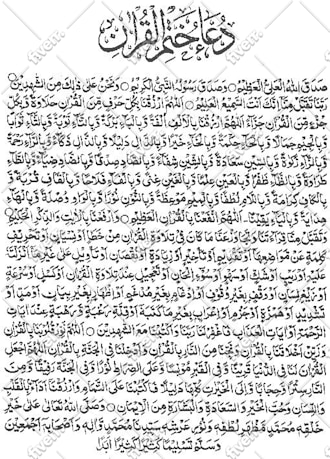 دُعَاءُ خَتْمِ الْقُرْاٰنِ
صَدَقَ اللهُ الْعَلِيُّ الْعَظِيْمُ ○ وَصَدَقَ رَسُوْلُهُ النَّبِيُّ الْكَرِيْمُ ○ وَنَحْنُ عَلٰى ذٰلِكَ مِنَ الشّٰهِدِيْنَ ○
رَبَّنَا تَقَبَّلْ مِنَّا اِنَّكَ اَنْتَ السَّمِيْعُ الْعَلِيْمُ ○ اَللّٰهُمَّ ارْزُقْنَا بِكُلِّ حَرْفٍ مِّنَ الْقُرْاٰنِ حَلَاوَةً وَّبِكُلِّ
جُزْءٍ مِّنَ الْقُرْاٰنِ جَزَاءً اَللّٰهُمَّ ارْزُقْنَا بِالْاَلِفِ اُلْفَةً وَّبِالْبَاءِ بَرَكَةً وَّبِالتَّاءِ تَوْبَةً وَّبِالثَّاءِ ثَوَابًا
وَّبِالْجِيْمِ جَمَالًا وَّبِالْحَاءِ حِكْمَةً وَّبِالْخَاءِ خَيْرًا وَّبِالدَّالِ دَلِيْلًا وَّبِالذَّالِ ذَكَاءً وَّبِالرَّاءِ رَحْمَةً
وَّبِالزَّاءِ زَكٰوةً وَّبِالسِّيْنِ سَعَادَةً وَّبِالشِّيْنِ شِفَاءً وَّبِالصَّادِ صِدْقًا وَّبِالضَّادِ ضِيَاءً وَّبِالطَّاءِ
طَرَاوَةً وَّبِالظَّاءِ ظَفْرًا وَّبِالْعَيْنِ عِلْمًا وَّبِالْغَيْنِ غِنًى وَّبِالْفَاءِ فَلَاحًا وَّبِالْقَافِ قُرْبَةً وَّ
بِالْكَافِ كَرَامَةً وَّبِاللَّامِ لُطْفًا وَّبِالْمِيْمِ مَوْعِظَةً وَّبِالنُّوْنِ نُوْرًا وَّبِالْوَاوِ وُصْلَةً وَّبِالْهَاءِ
هِدَايَةً وَّبِالْيَاءِ يَقِيْنًا ○ اَللّٰهُمَّ انْفَعْنَا بِالْقُرْاٰنِ الْعَظِيْمِ ○ وَارْفَعْنَا بِالْاٰيٰتِ وَالذِّكْرِ الْحَكِيْمِ ○
وَتَقَبَّلْ مِنَّا قِرَاءَتَنَا وَتَجَاوَزْ عَنَّا مَا كَانَ فِيْ تِلَاوَةِ الْقُرْاٰنِ مِنْ خَطَاٍ اَوْ نِسْيَانٍ اَوْ تَحْرِيْفِ
كَلِمَةٍ عَنْ مَّوَاضِعِهَا اَوْ تَقْدِيْمٍ اَوْ تَاْخِيْرٍ اَوْ زِيَادَةٍ اَوْ نُقْصَانٍ اَوْ تَاْوِيْلٍ عَلٰى غَيْرِ مَا اَنْزَلْتَهٗ
عَلَيْهِ اَوْ رَيْبٍ اَوْ شَكٍّ اَوْ سَهْوٍ اَوْ سُوْءِ اِلْحَانٍ اَوْ تَعْجِيْلٍ عِنْدَ تِلَاوَةِ الْقُرْاٰنِ اَوْ كَسَلٍ اَوْ سُرْعَةٍ
اَوْ زَيْغِ لِسَانٍ اَوْ وَقْفٍ بِغَيْرِ وُقُوْفٍ اَوْ اِدْغَامٍ بِغَيْرِ مُدْغَمٍ اَوْ اِظْهَارٍ بِغَيْرِ بَيَانٍ اَوْ مَدٍّ اَوْ
تَشْدِيْدٍ اَوْ هَمْزَةٍ اَوْ جَزْمٍ اَوْ اِعْرَابٍ بِغَيْرِ مَا كَتَبَهٗ اَوْ قِلَّةِ رَغْبَةٍ وَّرَهْبَةٍ عِنْدَ اٰيَاتِ
الرَّحْمَةِ اَوْ اٰيَاتِ الْعَذَابِ فَاغْفِرْ لَنَا رَبَّنَا وَاكْتُبْنَا مَعَ الشّٰهِدِيْنَ ○ اَللّٰهُمَّ نَوِّرْ قُلُوْبَنَا بِالْقُرْاٰنِ
وَزَيِّنْ اَخْلَاقَنَا بِالْقُرْاٰنِ وَنَجِّنَا مِنَ النَّارِ بِالْقُرْاٰنِ وَاَدْخِلْنَا فِي الْجَنَّةِ بِالْقُرْاٰنِ اَللّٰهُمَّ اجْعَلِ
الْقُرْاٰنَ لَنَا فِي الدُّنْيَا قَرِيْنًا وَّفِي الْقَبْرِ مُوْنِسًا وَّعَلَى الصِّرَاطِ نُوْرًا وَّفِي الْجَنَّةِ رَفِيْقًا وَّمِنَ
النَّارِ سِتْرًا وَّحِجَابًا وَّاِلَى الْخَيْرَاتِ كُلِّهَا دَلِيْلًا فَاكْتُبْنَا عَلَى التَّمَامِ وَارْزُقْنَا اَدَاءً بِالْقَلْبِ
وَاللِّسَانِ وَحُبِّ الْخَيْرِ وَالسَّعَادَةِ وَالْبَشَارَةِ مِنَ الْاِيْمَانِ ○ وَصَلَّى اللهُ تَعَالٰى عَلٰى خَيْرِ
خَلْقِهٖ مُحَمَّدٍ مَّظْهَرِ لُطْفِهٖ وَنُوْرِ عَرْشِهٖ سَيِّدِنَا مُحَمَّدٍ وَّاٰلِهٖ وَاَصْحَابِهٖ اَجْمَعِيْنَ
وَسَلَّمَ تَسْلِيْمًا كَثِيْرًا كَثِيْرًا اَبَدًا
fiverr.